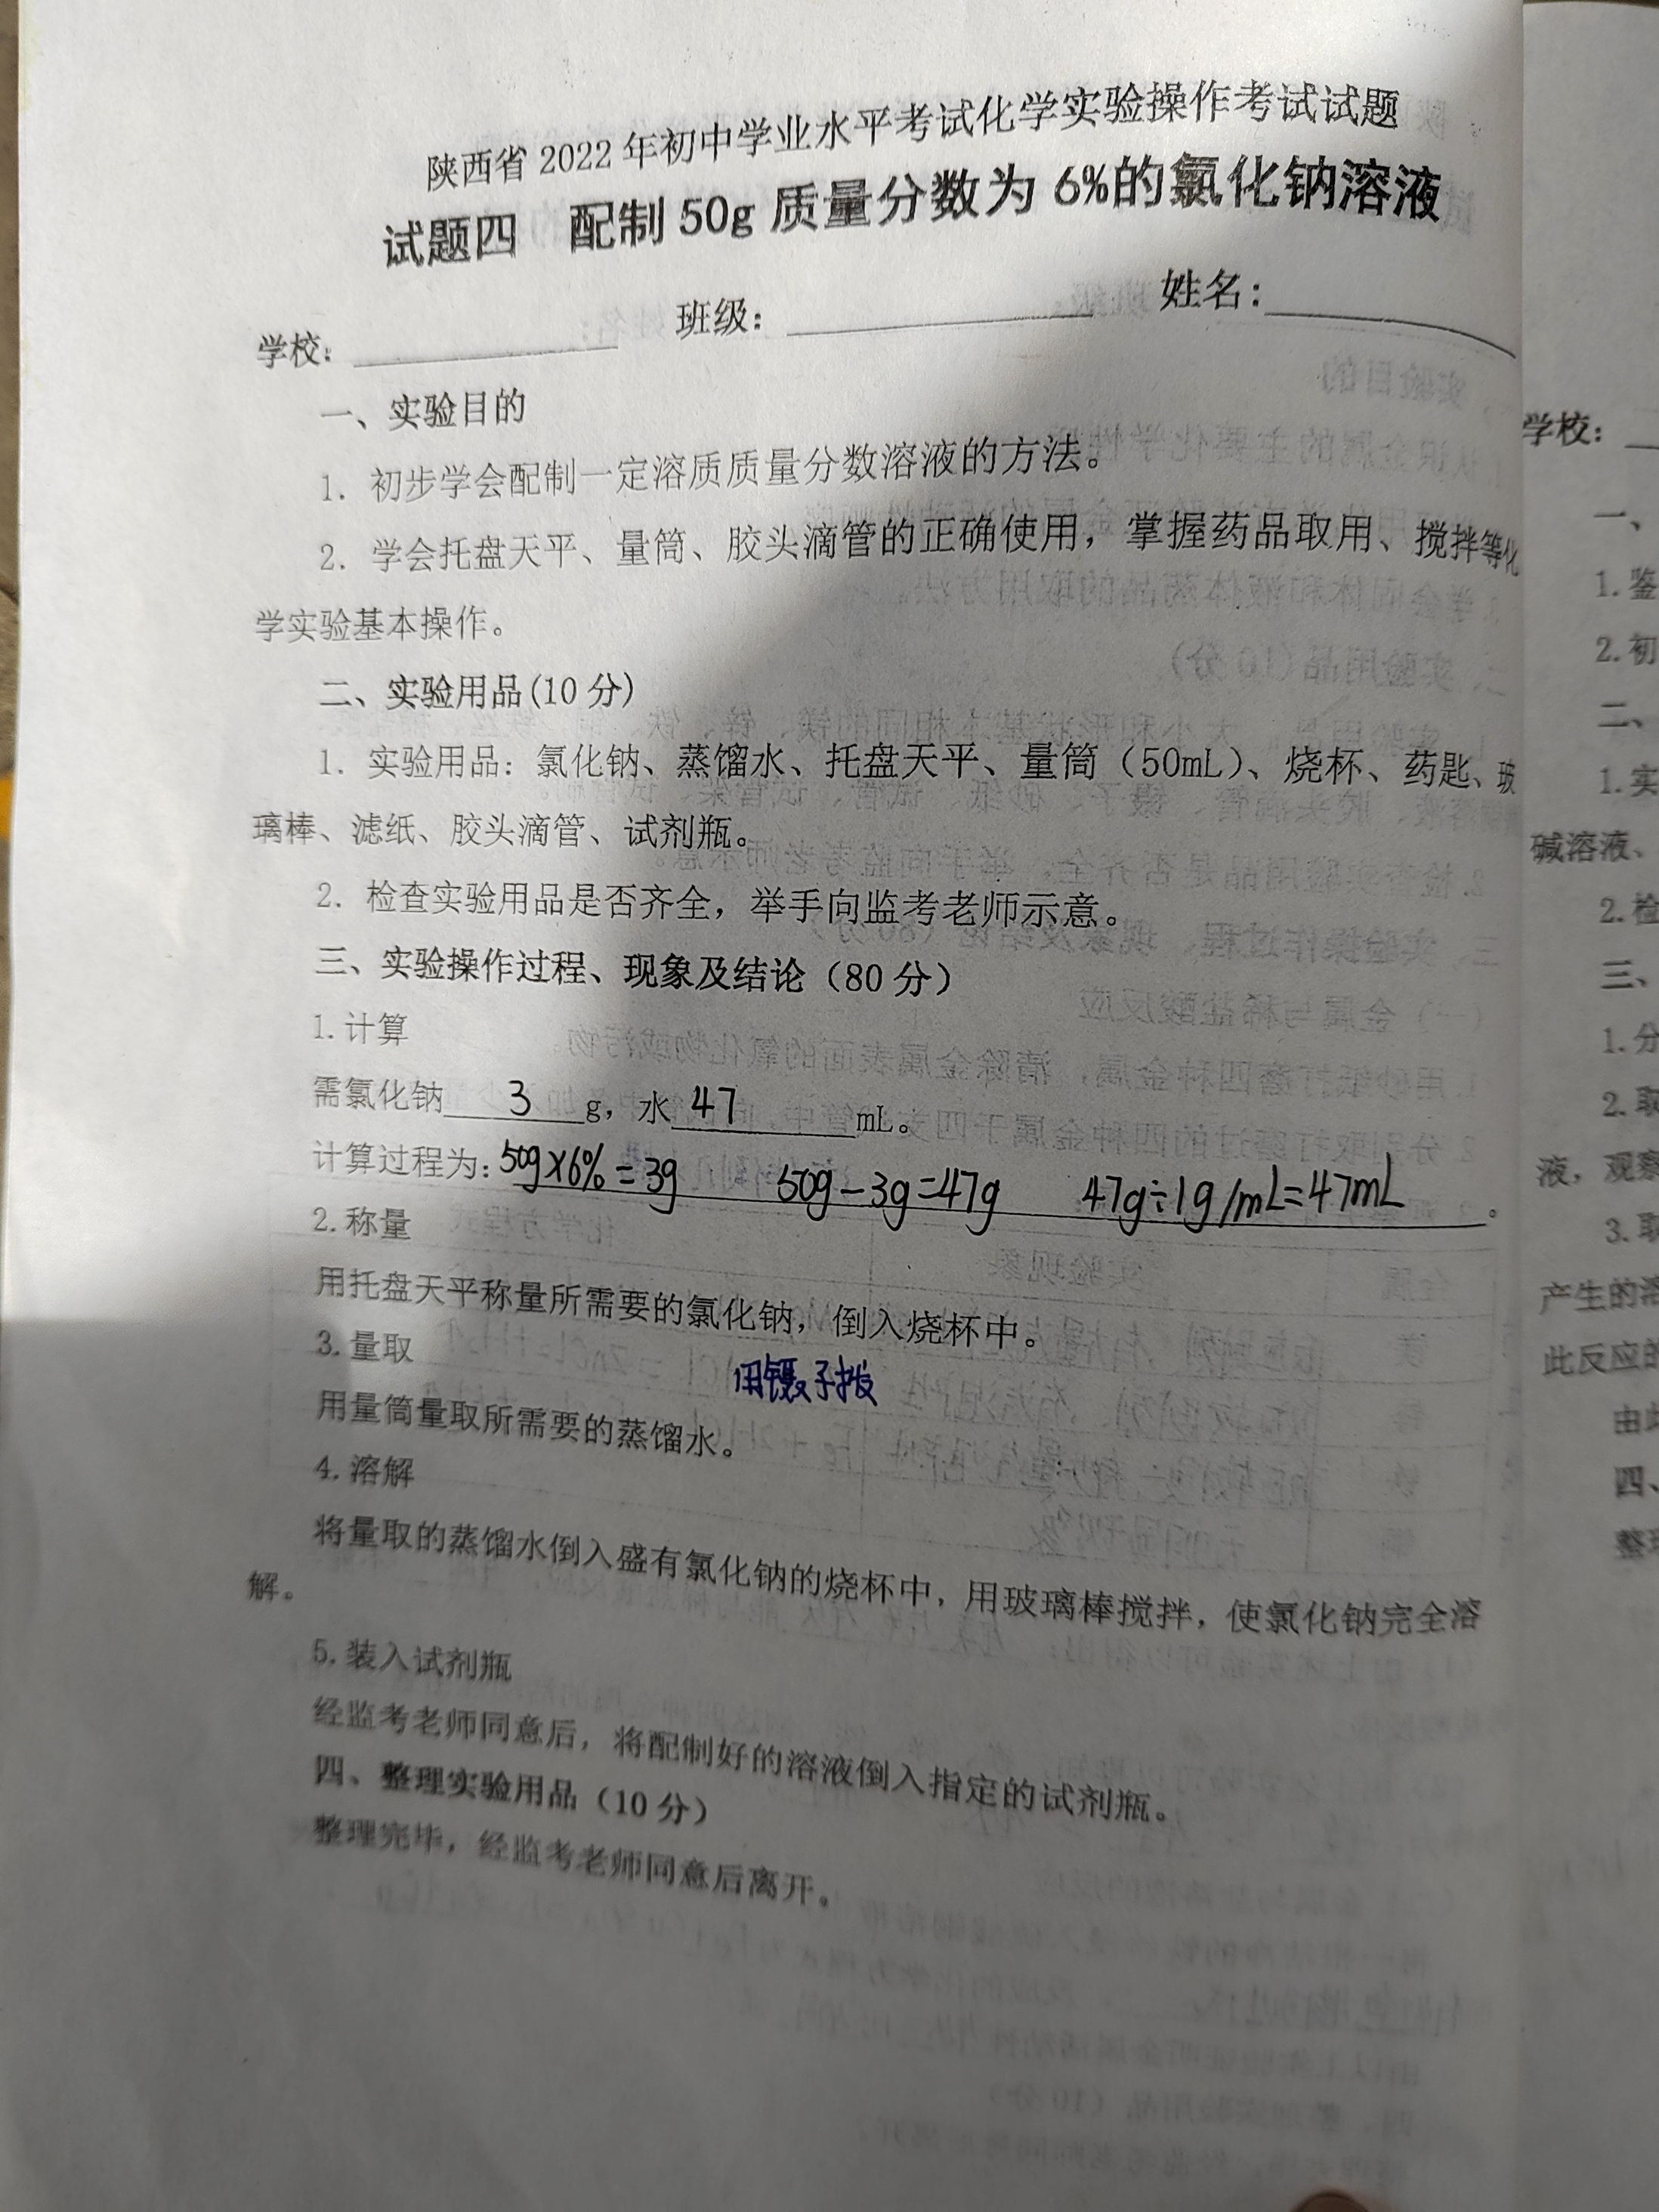 陕西省 2022 年初中学业水平考试化学实验操作考试试题
试题四 配制 50g 质量分数为 6%的氯化钠溶液
学校: 班级: 姓名:
一、实验目的
1. 初步学会配制一定溶质质量分数溶液的方法。
2. 学会托盘天平、量筒、胶头滴管的正确使用，掌握药品取用、搅拌等化
学实验基本操作。
二、实验用品(10 分)
1. 实验用品: 氯化钠、蒸馏水、托盘天平、量筒（50mL）、烧杯、药匙、玻
璃棒、滤纸、胶头滴管、试剂瓶。
2. 检查实验用品是否齐全，举手向监考老师示意。
三、实验操作过程、现象及结论（80 分）
1.计算
需氯化钠 3 g，水 47 mL。
计算过程为: 50g×6%=3g 50g-3g=47g 47g÷1g/mL=47mL。
2.称量
用托盘天平称量所需要的氯化钠，倒入烧杯中。
3.量取
用镊子拨
用量筒量取所需要的蒸馏水。
4.溶解
将量取的蒸馏水倒入盛有氯化钠的烧杯中，用玻璃棒搅拌，使氯化钠完全溶
解。
5.装入试剂瓶
经监考老师同意后，将配制好的溶液倒入指定的试剂瓶。
四、整理实验用品（10 分）
整理完毕，经监考老师同意后离开。
学校:
一、
1.鉴
2.初
二、
1.实
碱溶液、
2.检
三、
1.分
2.取
液，观察
3.取
产生的溶
此反应的
四、
整理